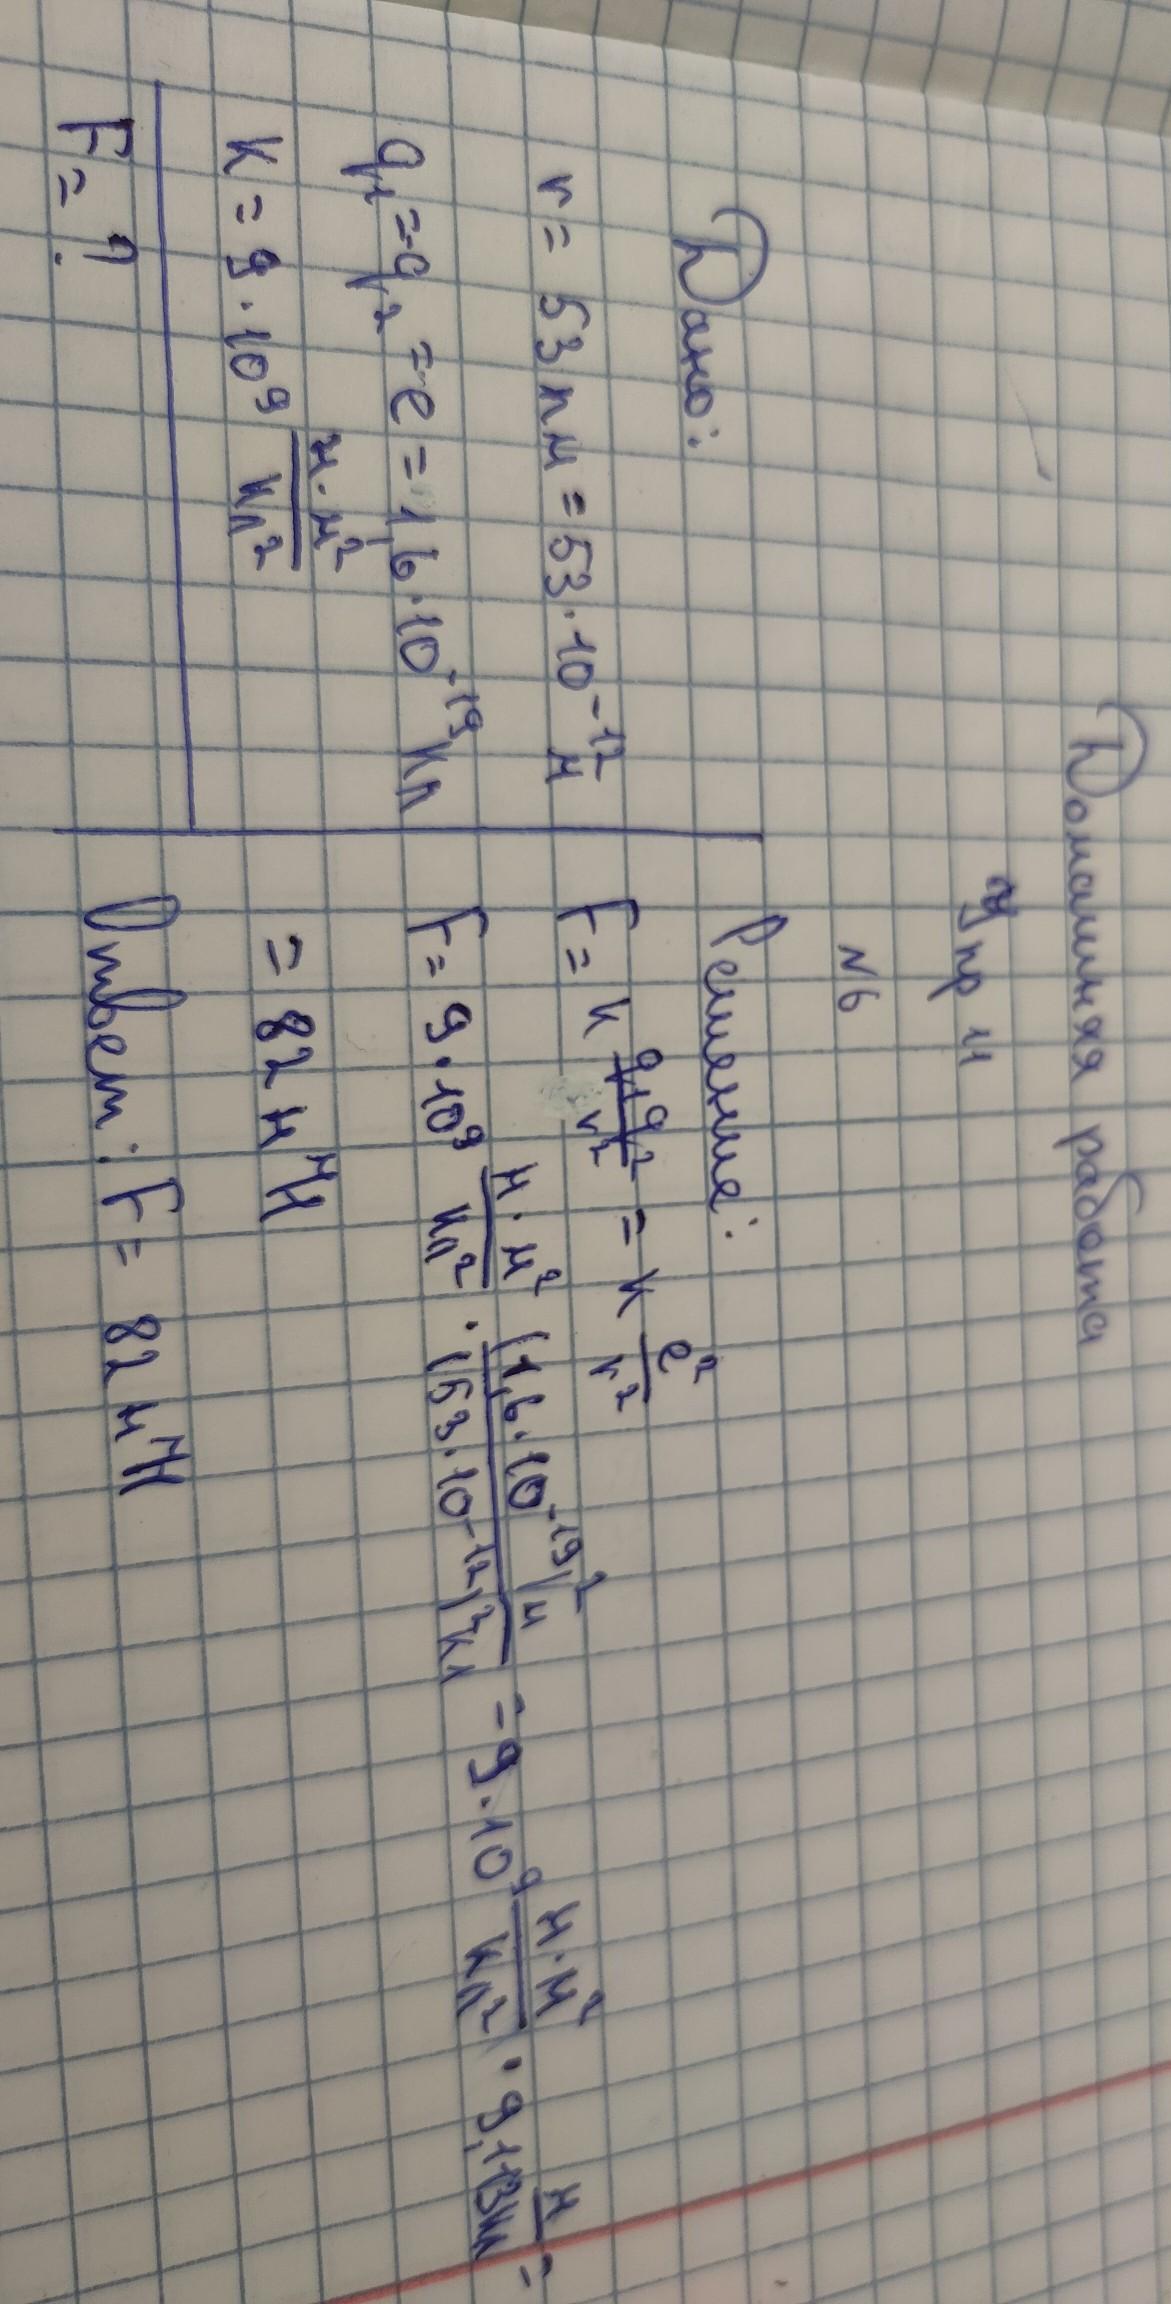 Домашняя работа
Упр 4
N6
Дано:
r = 53 пм = 53 · 10⁻¹² м
q₁ = q₂ = e = 1,6 · 10⁻¹⁹ Кл
k = 9 · 10⁹ Н·м²/Кл²
F = ?
Решение:
F = k q₁q₂/r² = k e²/r²
F = 9·10⁹ Н·м²/Кл² · (1,6·10⁻¹⁹)² м/(53·10⁻¹²)² Кл = 9·10⁹ Н·м²/Кл² ·
= 82 н
Ответ: F = 82 н